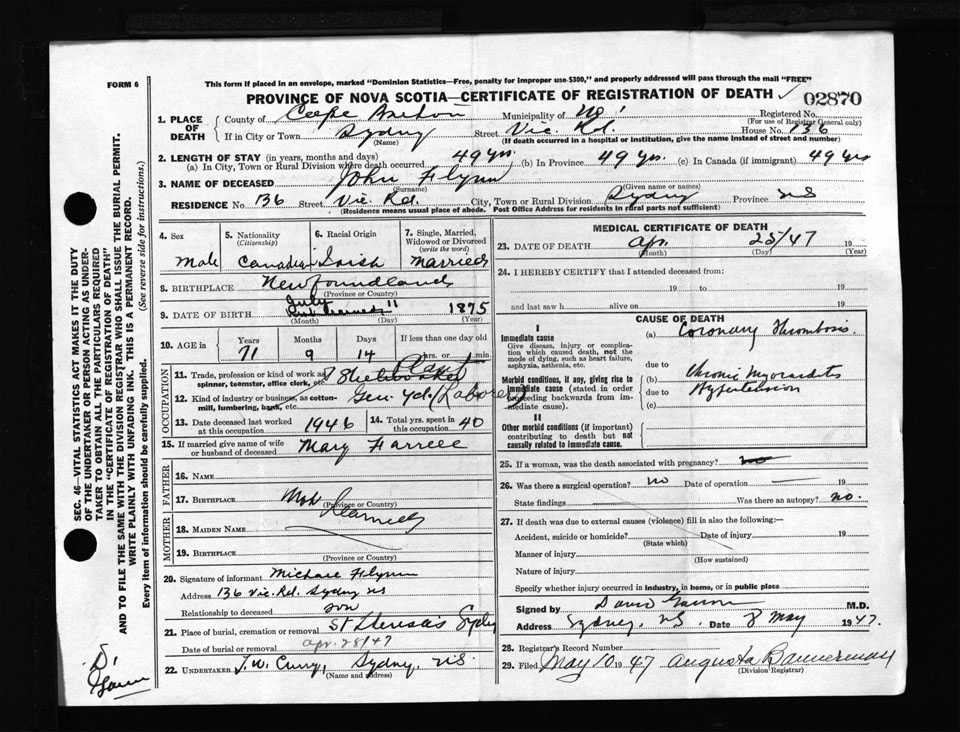 FORM 6
This form if placed in an envelope, marked "Dominion Statistics—Free, penalty for improper use $300," and properly addressed will pass through the mail "FREE"
PROVINCE OF NOVA SCOTIA—CERTIFICATE OF REGISTRATION OF DEATH
02870
1. PLACE OF DEATH
County of Cape Breton Municipality of No. Registered No.
(For use of Registrar General only)
If in City or Town Sydney Street Vic. Rd. House No. 136
(Name) (If death occurred in a hospital or institution, give the name instead of street and number)
2. LENGTH OF STAY (in years, months and days)
(a) In City, Town or Rural Division where death occurred 49 yrs. (b) In Province 49 yrs. (c) In Canada (if immigrant) 49 yrs
3. NAME OF DECEASED John Flynn
(Surname) (Given name or names)
RESIDENCE No 136 Street Vic. Rd. City, Town or Rural Division Sydney Province NS
(Residence means usual place of abode. Post Office Address for residents in rural parts not sufficient)
4. Sex
Male
5. Nationality
(Citizenship)
Canadian
6. Racial Origin
Irish
7. Single, Married, Widowed or Divorced
(write the word)
Married
8. BIRTHPLACE Newfoundland
(Province or Country)
9. DATE OF BIRTH July 11 1875
(Month) (Day) (Year)
10. AGE in
Years Months Days If less than one day
71 9 14 hrs. or min.
OCCUPATION
11. Trade, profession or kind of work as spinner, teamster, office clerk, etc.
12. Kind of industry or business, as cotton-mill, lumbering, bank, etc. Gen. yd. (Laborer)
13. Date deceased last worked at this occupation 1946
14. Total yrs. spent in this occupation 40
15. If married give name of wife or husband of deceased Mary Farrell
FATHER
16. NAME
17. BIRTHPLACE Not Learned
(Province or Country)
MOTHER
18. MAIDEN NAME
19. BIRTHPLACE
(Province or Country)
20. Signature of informant Michael Flynn
Address 136 Vic. Rd. Sydney NS
Relationship to deceased son
21. Place of burial, cremation or removal St Theresas Sydney
Date of burial or removal Apr. 28/47
22. UNDERTAKER T. W. Curry, Sydney, N.S.
(Name and address)
MEDICAL CERTIFICATE OF DEATH
23. DATE OF DEATH Apr. 25/47 19
(Month) (Day) (Year)
24. I HEREBY CERTIFY that I attended deceased from:
19 to 19
and last saw h alive on 19
CAUSE OF DEATH
I
Immediate cause
Give disease, injury or complication which caused death, not the mode of dying, such as heart failure, asphyxia, asthenia, etc.
(a) Coronary Thrombosis.
due to
Morbid conditions, if any, giving rise to immediate cause (stated in order proceeding backwards from immediate cause).
(b) Chronic Myocarditis
due to Hypertension
(c)
II
Other morbid conditions (if important) contributing to death but not causally related to immediate cause.
25. If a woman, was the death associated with pregnancy? no
26. Was there a surgical operation? no Date of operation — 19
State findings Was there an autopsy? no.
27. If death was due to external causes (violence) fill in also the following:—
Accident, suicide or homicide? Date of injury 19
(State which)
Manner of injury
(How sustained)
Nature of injury
Specify whether injury occurred in industry, in home, or in public place
Signed by David M.D.
Address Sydney, N.S. Date 8 May 1947.
28. Registrar's Record Number
29. Filed May 10 1947 Augusta Bannerman
(Division Registrar)
SEC. 46—VITAL STATISTICS ACT MAKES IT THE DUTY
OF THE UNDERTAKER OR PERSON ACTING AS UNDER-
TAKER TO OBTAIN ALL THE PARTICULARS REQUIRED
IN THE "CERTIFICATE OF REGISTRATION OF DEATH"
AND TO FILE THE SAME WITH THE DIVISION REGISTRAR WHO SHALL ISSUE THE BURIAL PERMIT.
WRITE PLAINLY WITH UNFADING INK. THIS IS A PERMANENT RECORD.
Every item of information should be carefully supplied. (See reverse side for instructions.)